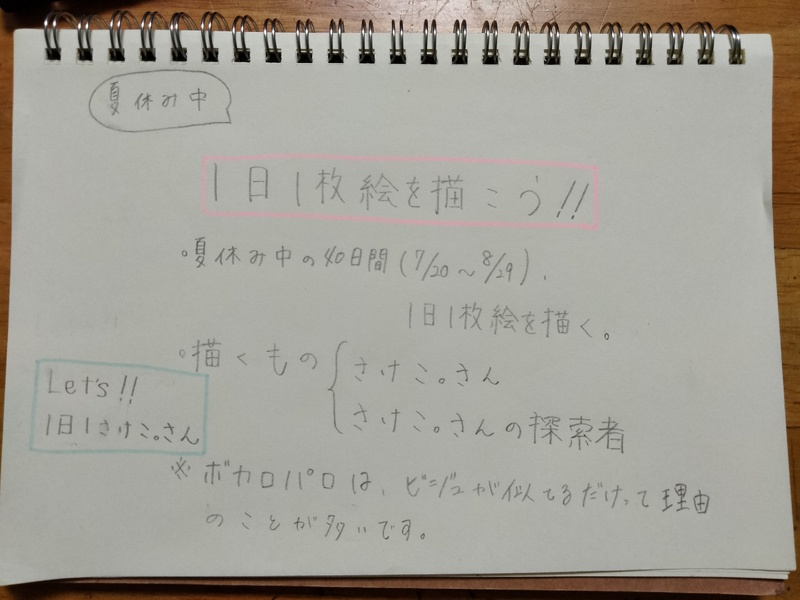 夏休み中
1日1枚絵を描こう!!
。夏休み中の40日間(7/20～8/29)、
1日1枚絵を描く。
。描くもの{さけこ。さん
さけこ。さんの探索者
Let's!!
1日1さけこ。さん
※ボカロパロは、ビジュが似てるだけって理由
のことが多いです。